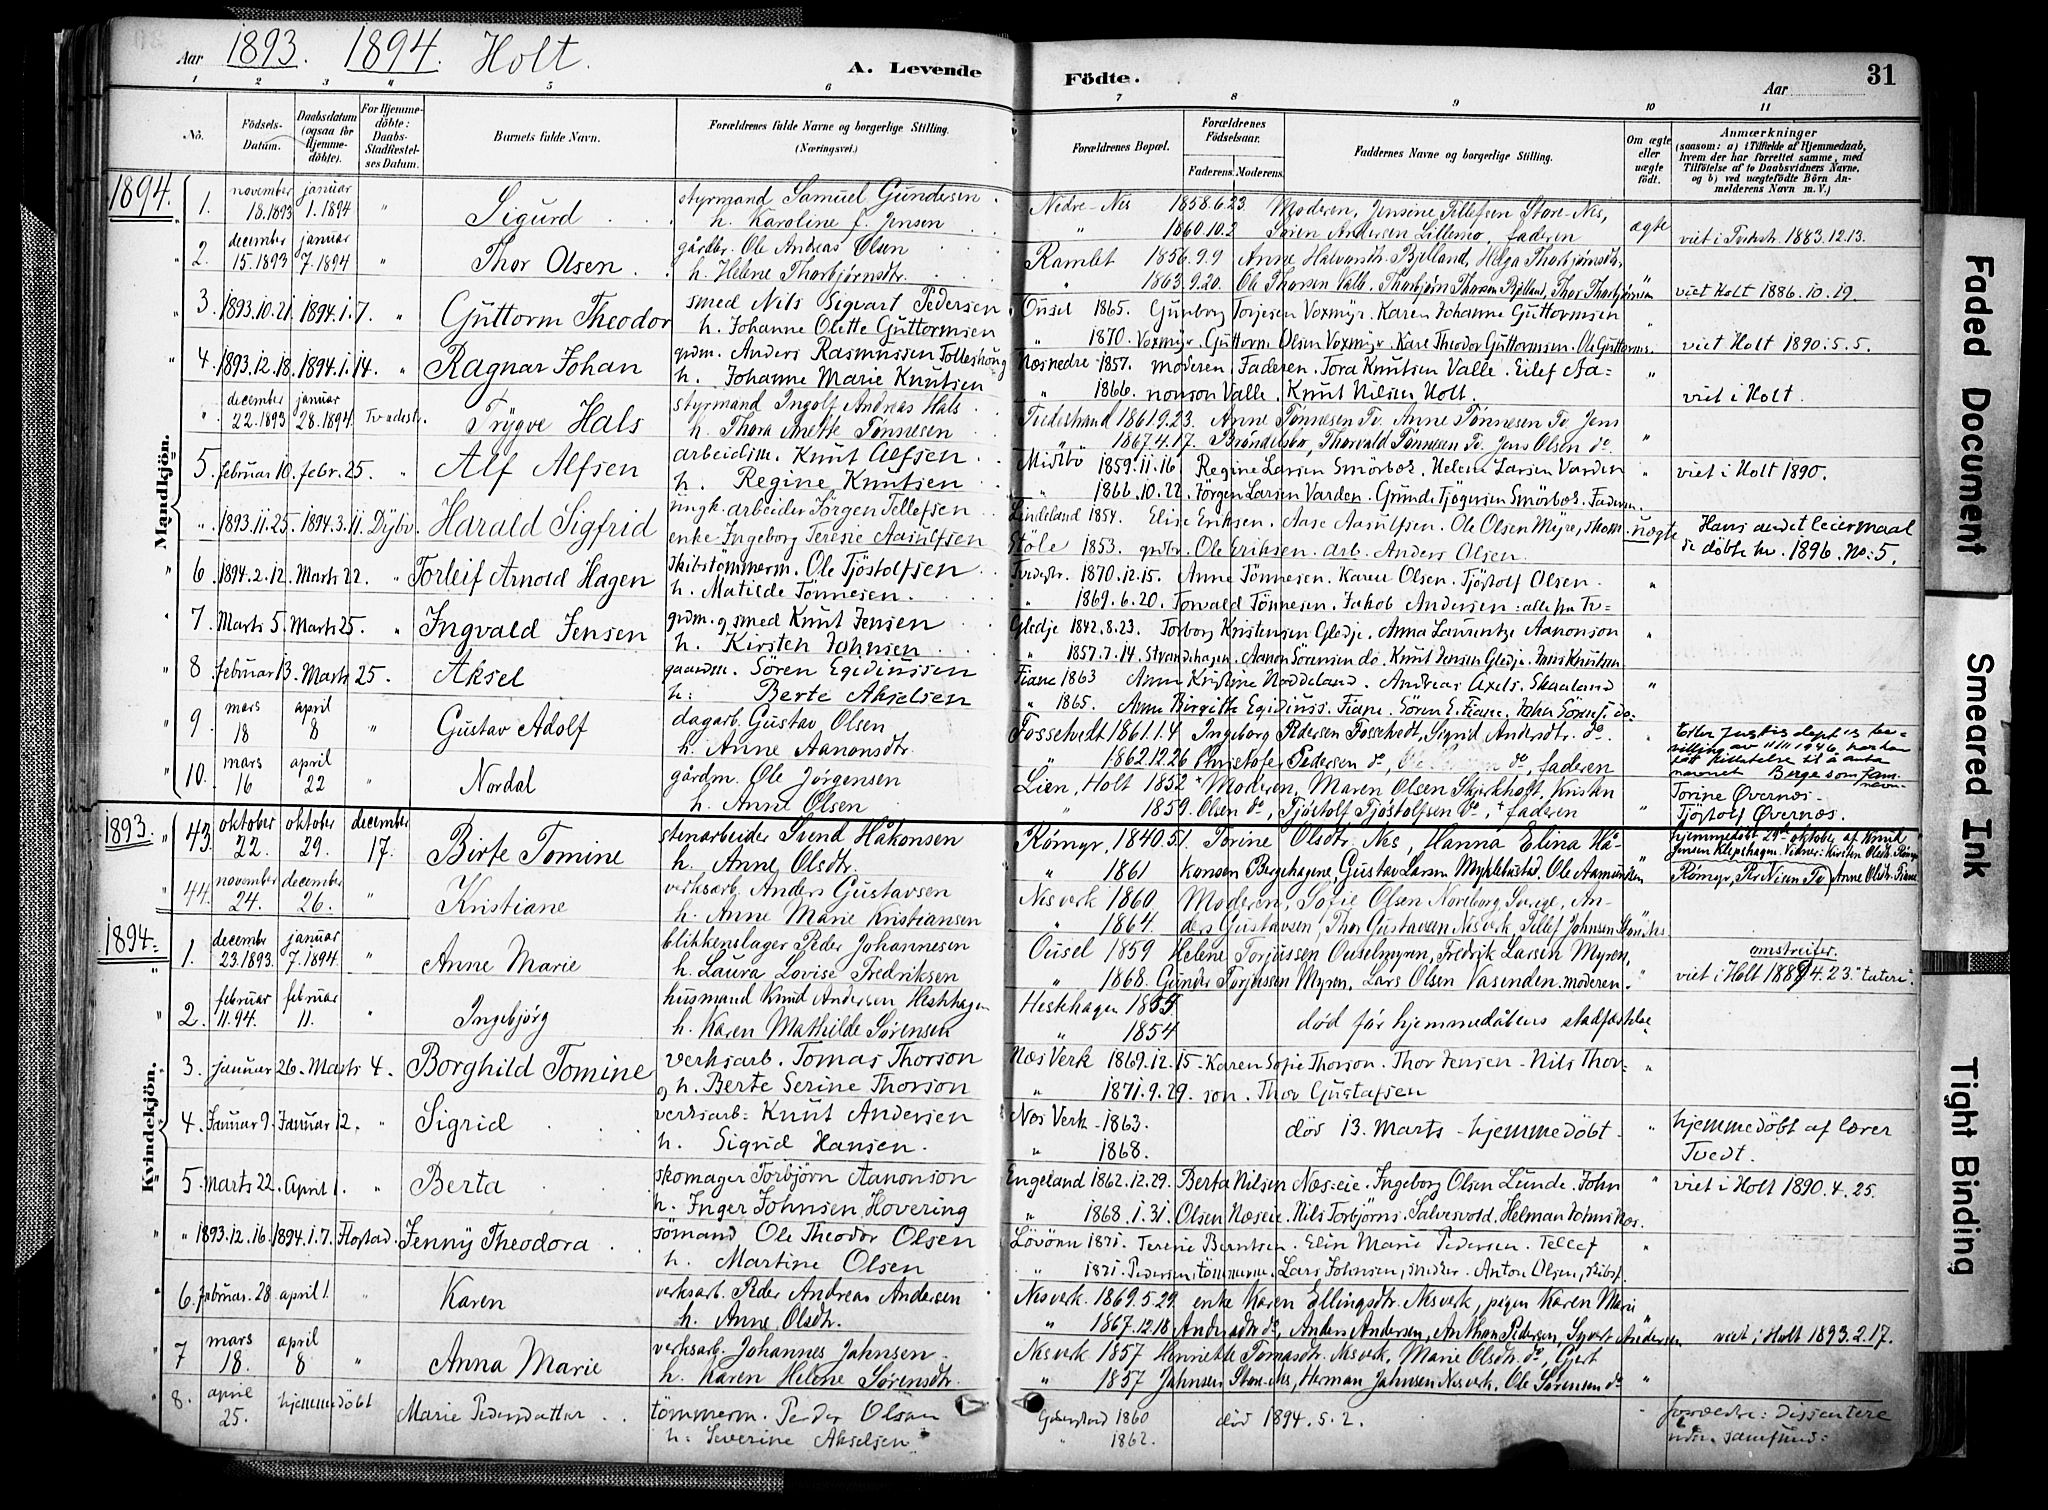 Aar 1893. 1894. Holt. A. Levende Födte. Aar 31
1 2 3 4 5 6 7 8 9 10 11
No. Födsels-Datum. Daabsdatum (ogsaa for Hjemme-döbte). For Hjemme-döbte: Daabs-Stadfæstel-ses Datum. Barnets fulde Navn. Forældrenes fulde Navne og borgerlige Stilling. (Næringsvei.) Forældrenes Bopæl. Forældrenes Födselsaar. Faderens. Moderens. Faddernes Navne og borgerlige Stilling. Om ægte eller uægte födt. Anmærkninger (saasom: a) i Tilfælde af Hjemmedaab, hvem der har forrettet samme, med Tilföielse af to Daabsvidners Navne, og b) ved uægtefödte Börn An-melderens Navn m. V.)
1894.
Mandkjön.
1. november 18.1893 januar 1.1894 " Sigurd styrmand Samuel Gundersen Nedre-Nes 1858.6.23 Moderen, Jensine Tellefsen Store-Nes,
h. Karoline f. Jensen " 1860.10.2 Søren Andersen Lillemo, faderen ægte viet i Tvedestr. 1883.12.13.
2. december 15.1893 januar 7.1894 " Thor Olsen gårdbr. Ole Andreas Olsen Ramlet 1856.9.9 Anne Halvorsdtr. Bjelland, Helga Thorbjørnsdtr,
h. Helene Thorbjørnsdtr. " 1863.9.20. Ole Thorsen Valb. Thorbjørn Thorsen Bjelland, Thor Thorbjørnsen " viet Holt 1886.10.19.
3. 1893.10.21. 1894.1.7. " Guttorm Theodor smed Nils Sigvart Pedersen Ousel 1865. Gunborg Torjesen Voxmyr. Karen Johanne Guttormsen
h. Johanne Olette Guttormsen " 1870. Voxmyr. Guttorm Olsen Voxmyr. Kare Theodor Guttormsen. Ole Guttorms. " viet Holt 1890.5.5.
4. 1893.12.18. 1894.1.14. " Ragnar Johan grdm. Anders Rasmussen Tolleshoug Næsnedre 1857. moderen Faderen. Tora Knutsen Valle. Eilef Aa=
h. Johanne Marie Knutsen " 1866. nonson Valle. Knut Nilsen Holt. " viet i Holt.
" december 22.1893 januar 28.1894. Tvedestr. Trygve Hals styrmand Ingolf Andreas Hals 1861.9.23. Anne Tønnesen Tv. Anne Tønnesen Tv. Jens
h. Thora Anette Tønnesen " 1867.4.17. Thorvald Tønnesen Tv. Jens Olsen do. "
5. februar 10. febr. 25. " Alf Alfsen arbeidsm. Knut Alfsen Midtbö 1859.11.16. Regine Larsen Smörbok. Helene Larsen Varden " viet i Holt 1890.
h. Regine Knutsen " 1866.10.22. Jörgen Larsen Varden. Grunde Tjögersen Smörbok. Faderen.
" 1893.11.25. 1894.3.11. Dÿbv. Harald Sigfrid ungk. arbeider Jörgen Tellefsen Lindeland 1854. Elise Eriksen. Aase Aasulfsen. Ole Olsen Myre, uægte Hans andet leiermaal
enke Ingeborg Teresie Aasulfsen Støle 1853. Ole Eriksen. arb. Anders Olsen. se døbte kv. 1896. No: 5.
6 1894.2.12. Marts 22. " Torleif Arnold Hagen Skibstömmerm. Ole Tjöstolfsen Tvedestr. 1870.12.15. Anne Tönnesen. Karen Olsen. Tjøstolf Olsen. "
h. Matilde Tönnesen. " 1869.6.20. Torvald Tönnesen. Jakob Andersen: alle fra Tv=
7 Marts 5. Marts 25. " Ingvald Jensen grdm. og smed Knut Jensen Gledje 1842.8.23. Torborg Kristensen Gledje. Anna Laurentze Aanonson "
h. Kirsten Johnsen " 1857.7.14. Strandehagen. Aanon Sörensen do. Knut Jensen Gledje. Jens Knutsen
8 februar 13. Marts 25. Aksel gaardm. Sören Egidiussen Fiane 1863 Anne Kristine Noddeland. Andreas Axels. Skaaland "
h: Berte Akselsen " 1865. Anne Birgitte Egidiuss. Fiane. Sören E. Fiane. John Sörens. do=
9 mars 18 april 8 " Gustav Adolf dagarb. Gustav Olsen Fossetvedt 1861.1.4 Ingeborg Pedersen Fossetvedt, Sigrid Andersdtr. do. Efter Justis dept.is be-
h. Anne Aanonsdtr. " 1862.12.26 Christofer Pedersen do, do, faderen villing av 11/11 1946 har han fått tillatelse til å anta
10. mars 16 april 22 " Nordal gårdm. Ole Jørgensen Lien, Holt 1852 Moderen, Maren Olsen Skjerkholt, Kristen navnet Berge som fam-navn.
h. Anne Olsen " 1859. Olsen do, Tjøstolf Tjøstolfsen do, faderen " Torine Øvernes. Tjöstolf Øvernæs.
1893.
Kvindekjön.
43. oktober 22. oktober 29. december 17. Birte Tomine stenarbeider Svend Håkonsen Rømyr, 1840.5.1. Torine Olsdtr. Nes, Hanna Elina Hå- hjemmedøbt 29de oktober af Knud
h. Anne Olsdtr. " 1861 konsen Bergehagene, Gustav Larsen Myklebustad. Ole Aamundsen " Jensen Klepshagen. Vidner: Kirsten Olsdtr. Rømyr
44. november 24. december 26. " Kristiane verksarb. Anders Gustavsen Nesverk 1860 Moderen, Sofie Olsen Norelborg Sverige, An- Rømyr, Anne Olsdtr. Fiane
h. Anne Marie Kristiansen " 1864. ders Gustavsen, Thor Gustavsen Nesverk, Tellef Johnsen
1894.
1. december 23.1893. januar 7.1894. " Anne Marie blikkenslager Peder Johannesen Ousel 1859 Helene Torjussen Ouselmyren, Fredrik Larsen Myren, omstreifer.
h. Laura Lovise Fredriksen " 1868. Gunder Torjussen Myren, Lars Olsen Vasenden. moderen. " viet i Holt 1889.4.23. "tatere".
2. februar 11.94. februar 11. " Ingebjørg husmand Knud Andersen Heshhagen Heskhagen 1855
h. Karen Mathilde Sørensen " 1854 død før hjemmedåbens stadfæstelse "
3. januar 26. Marts 4. Borghild Tomine verksarb. Tomas Thorson Næs Verk 1869.12.15. Karen Sofie Thorson. Thor Jensen - Nils Thor= "
h. Berte Serine Thorson " 1871.9.29. son. Thor Gustafsen
4. Januar 9. Januar 12. " Sigrid verksarb= Knut Andersen Nes Verk - 1863. död 13. Marts - hjemmedöbt - " hjemmedöbt af lærer
h. Sigrid Hansen. " 1868. Tvedt.
5. Marts 22. April 1. " Berta skomager Torbjörn Aanonson Engeland 1862.12.29. Berta Nilsen Næs=eie. Ingeborg Olsen Lunde. John " viet i Holt 1890.4.25.
h. Inger Johnsen Hovering " 1868.1.31. Olsen Næseie. Nils Torbjörns. Salvesvold. Helman Johns. Næs.
" 1893.12.16. 1894.1.7. Flostad. Jenny Theodora sömand Ole Theodor Olsen Lövönn 1871. Terine Berntsen. Elin Marie Pedersen. Tellef "
h. Martine Olsen " 1871. Pedersen, tömmerm. Lars Johnsen, Anton Olsen,
6. februar. 28 april 1. " Karen verksarb. Peder Andreas Andersen Nesverk. 1869.5.29. enke Karen Ellingsdtr. Nesverk, pigen Karen Marie
h. Anne Olsdtr. " 1867.12.18 Andersdtr do, Anders Andersen, Anthon Pedersen, Syvert Andersen viet i Holt 1893.2.17.
7 mars 18. april 8 " Anna Marie verksarb. Johannes Jahnsen Nesverk 1857 Henriette Tomasdtr. Nesverk, Marie Olsdtr. do, Gjert
h. Karen Helene Sørensdtr. " 1857 Jahnsen Store-Nes, Herman Jahnsen Nesverk, Ole Sørensen do "
8. april 25. hjemmedöbt Marie Pedersdatter tömmerm. Peder Olsen 1860 död 1894.5.2. forældre: Dissentere
h: Severine Akselsen " 1862. samfund:
Faded Document
Smeared Ink
Tight Binding